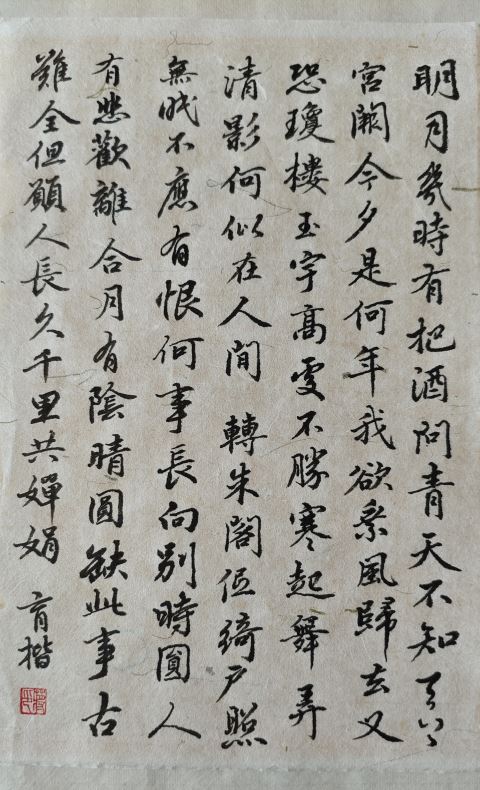 明月幾時有把酒問青天不知天上
宮闕今夕是何年我欲乘風歸去又
恐瓊樓玉宇高處不勝寒起舞弄
清影何似在人間 轉朱閣低綺戶照
無眠不應有恨何事長向別時圓人
有悲歡離合月有陰晴圓缺此事古
難全但願人長久千里共嬋娟 育楷